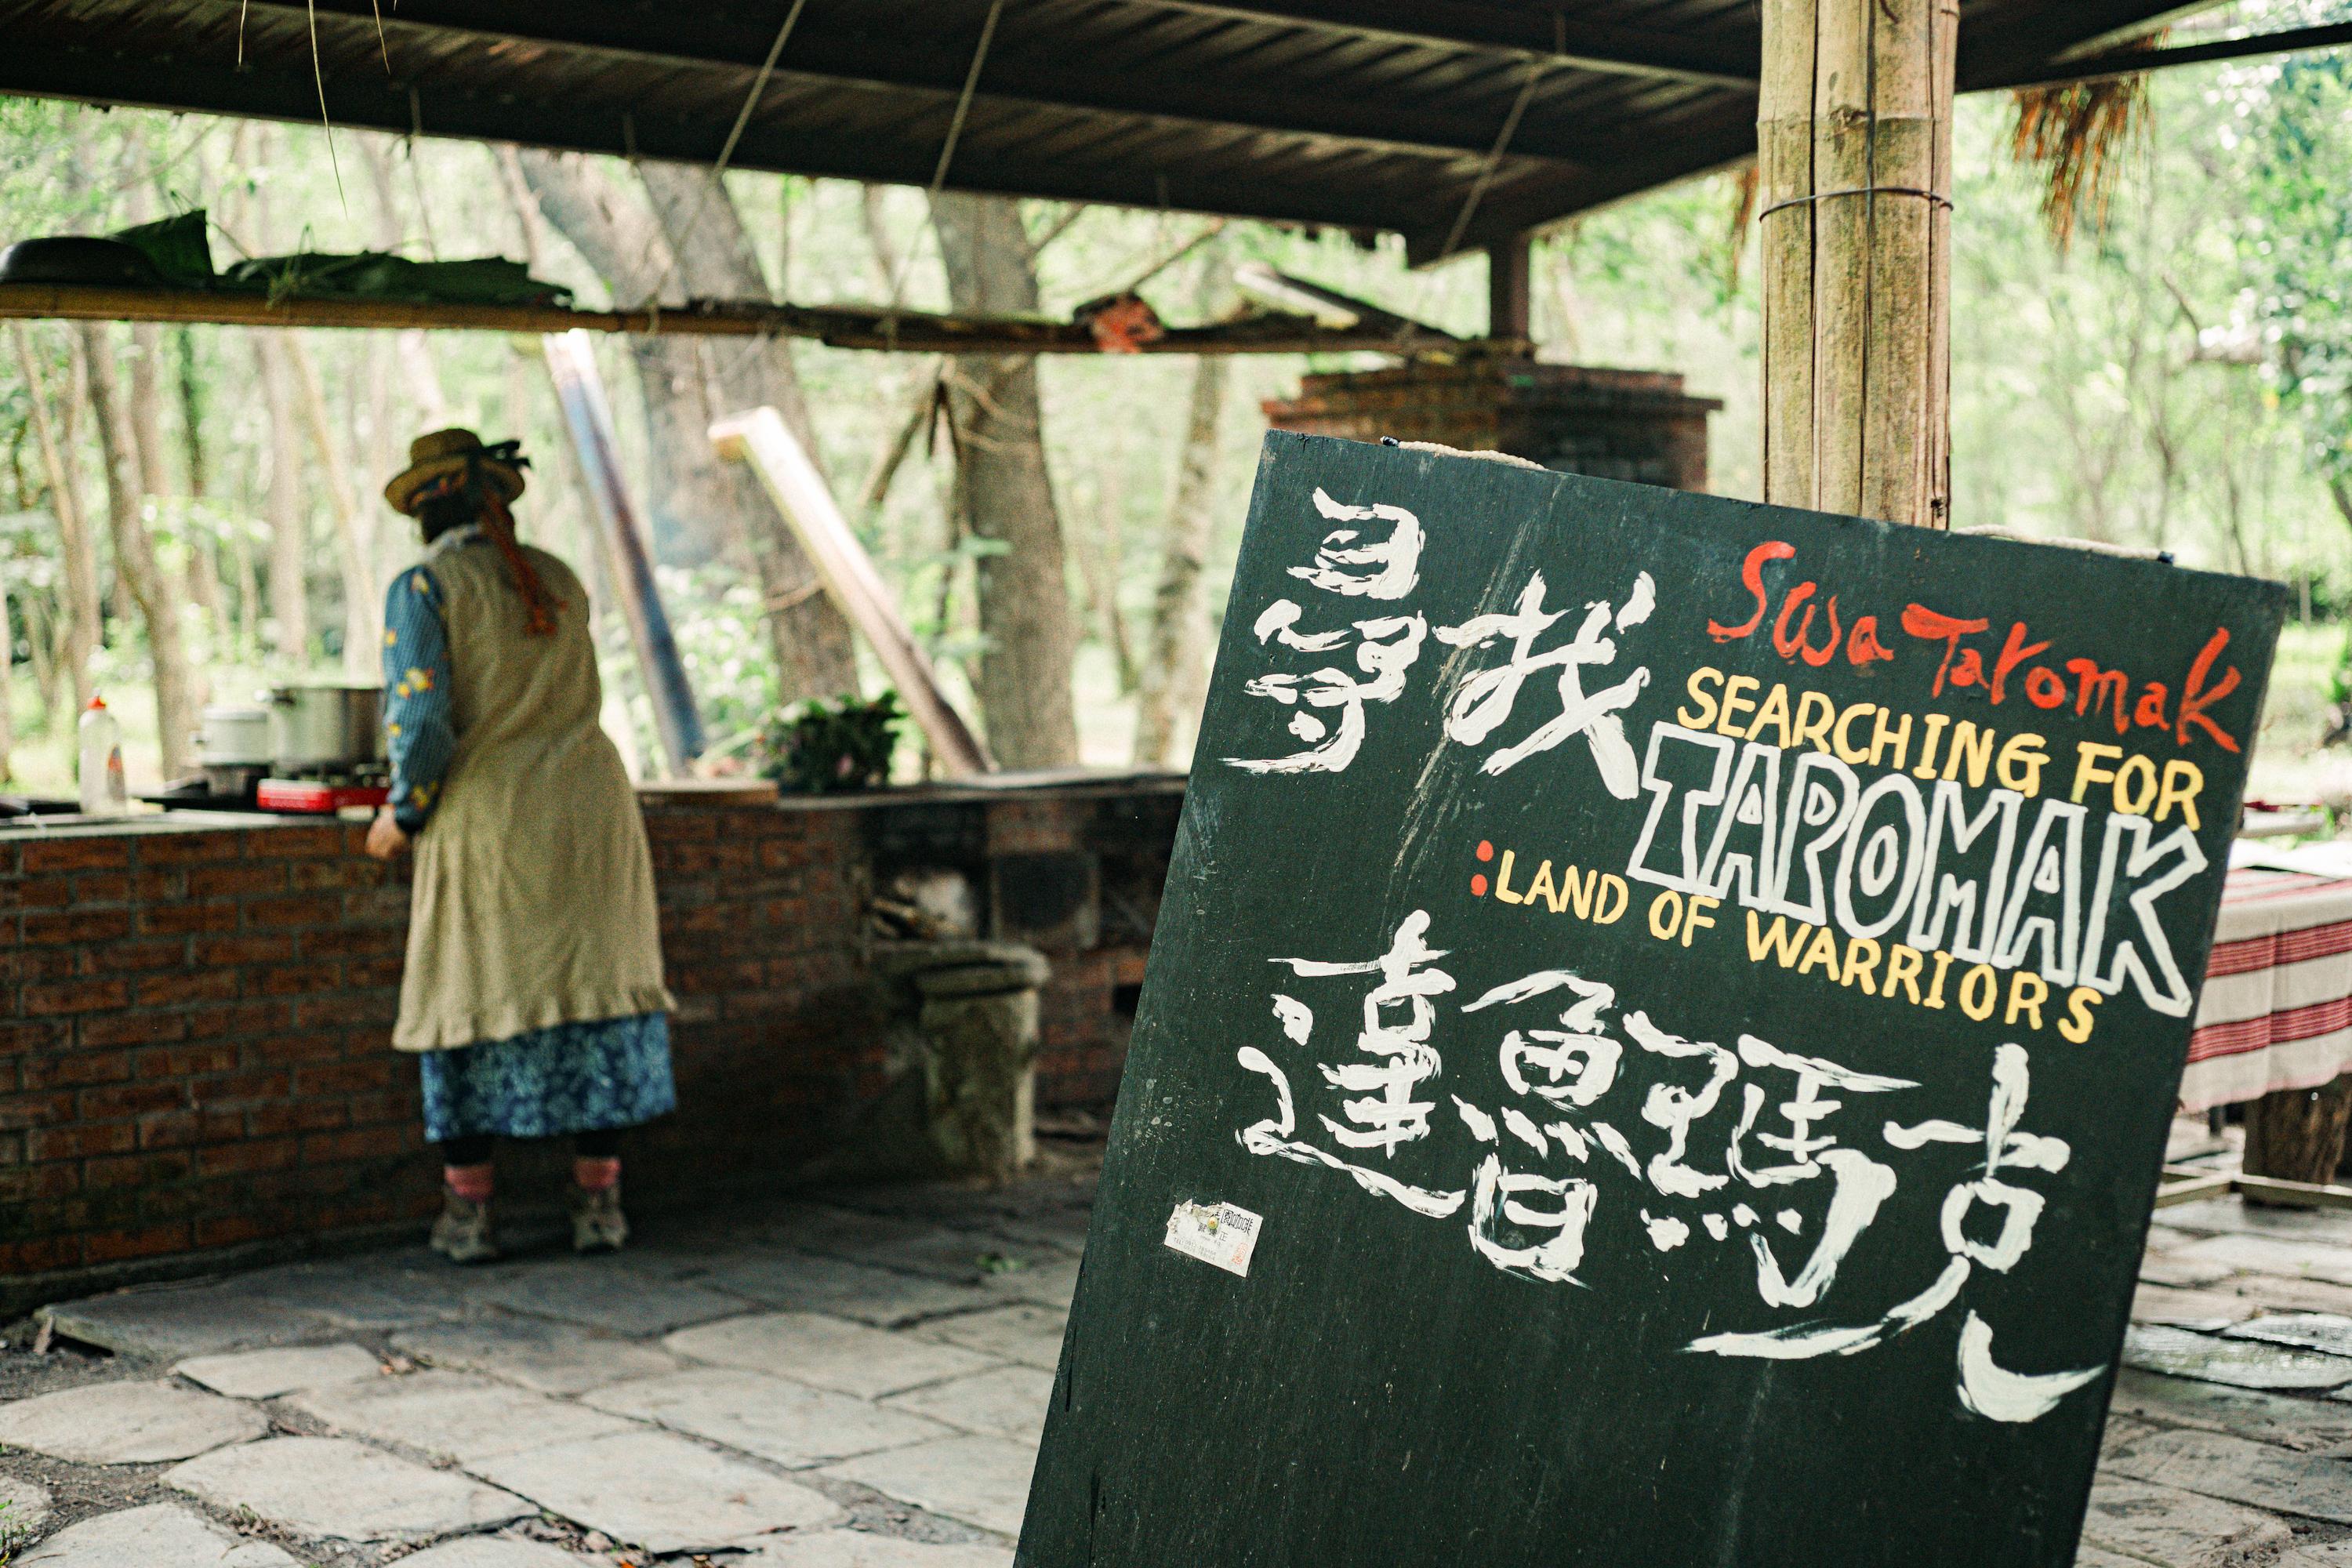 尋找
Swa Taromak
SEARCHING FOR
TAROMAK
:LAND OF WARRIORS
達魯瑪克